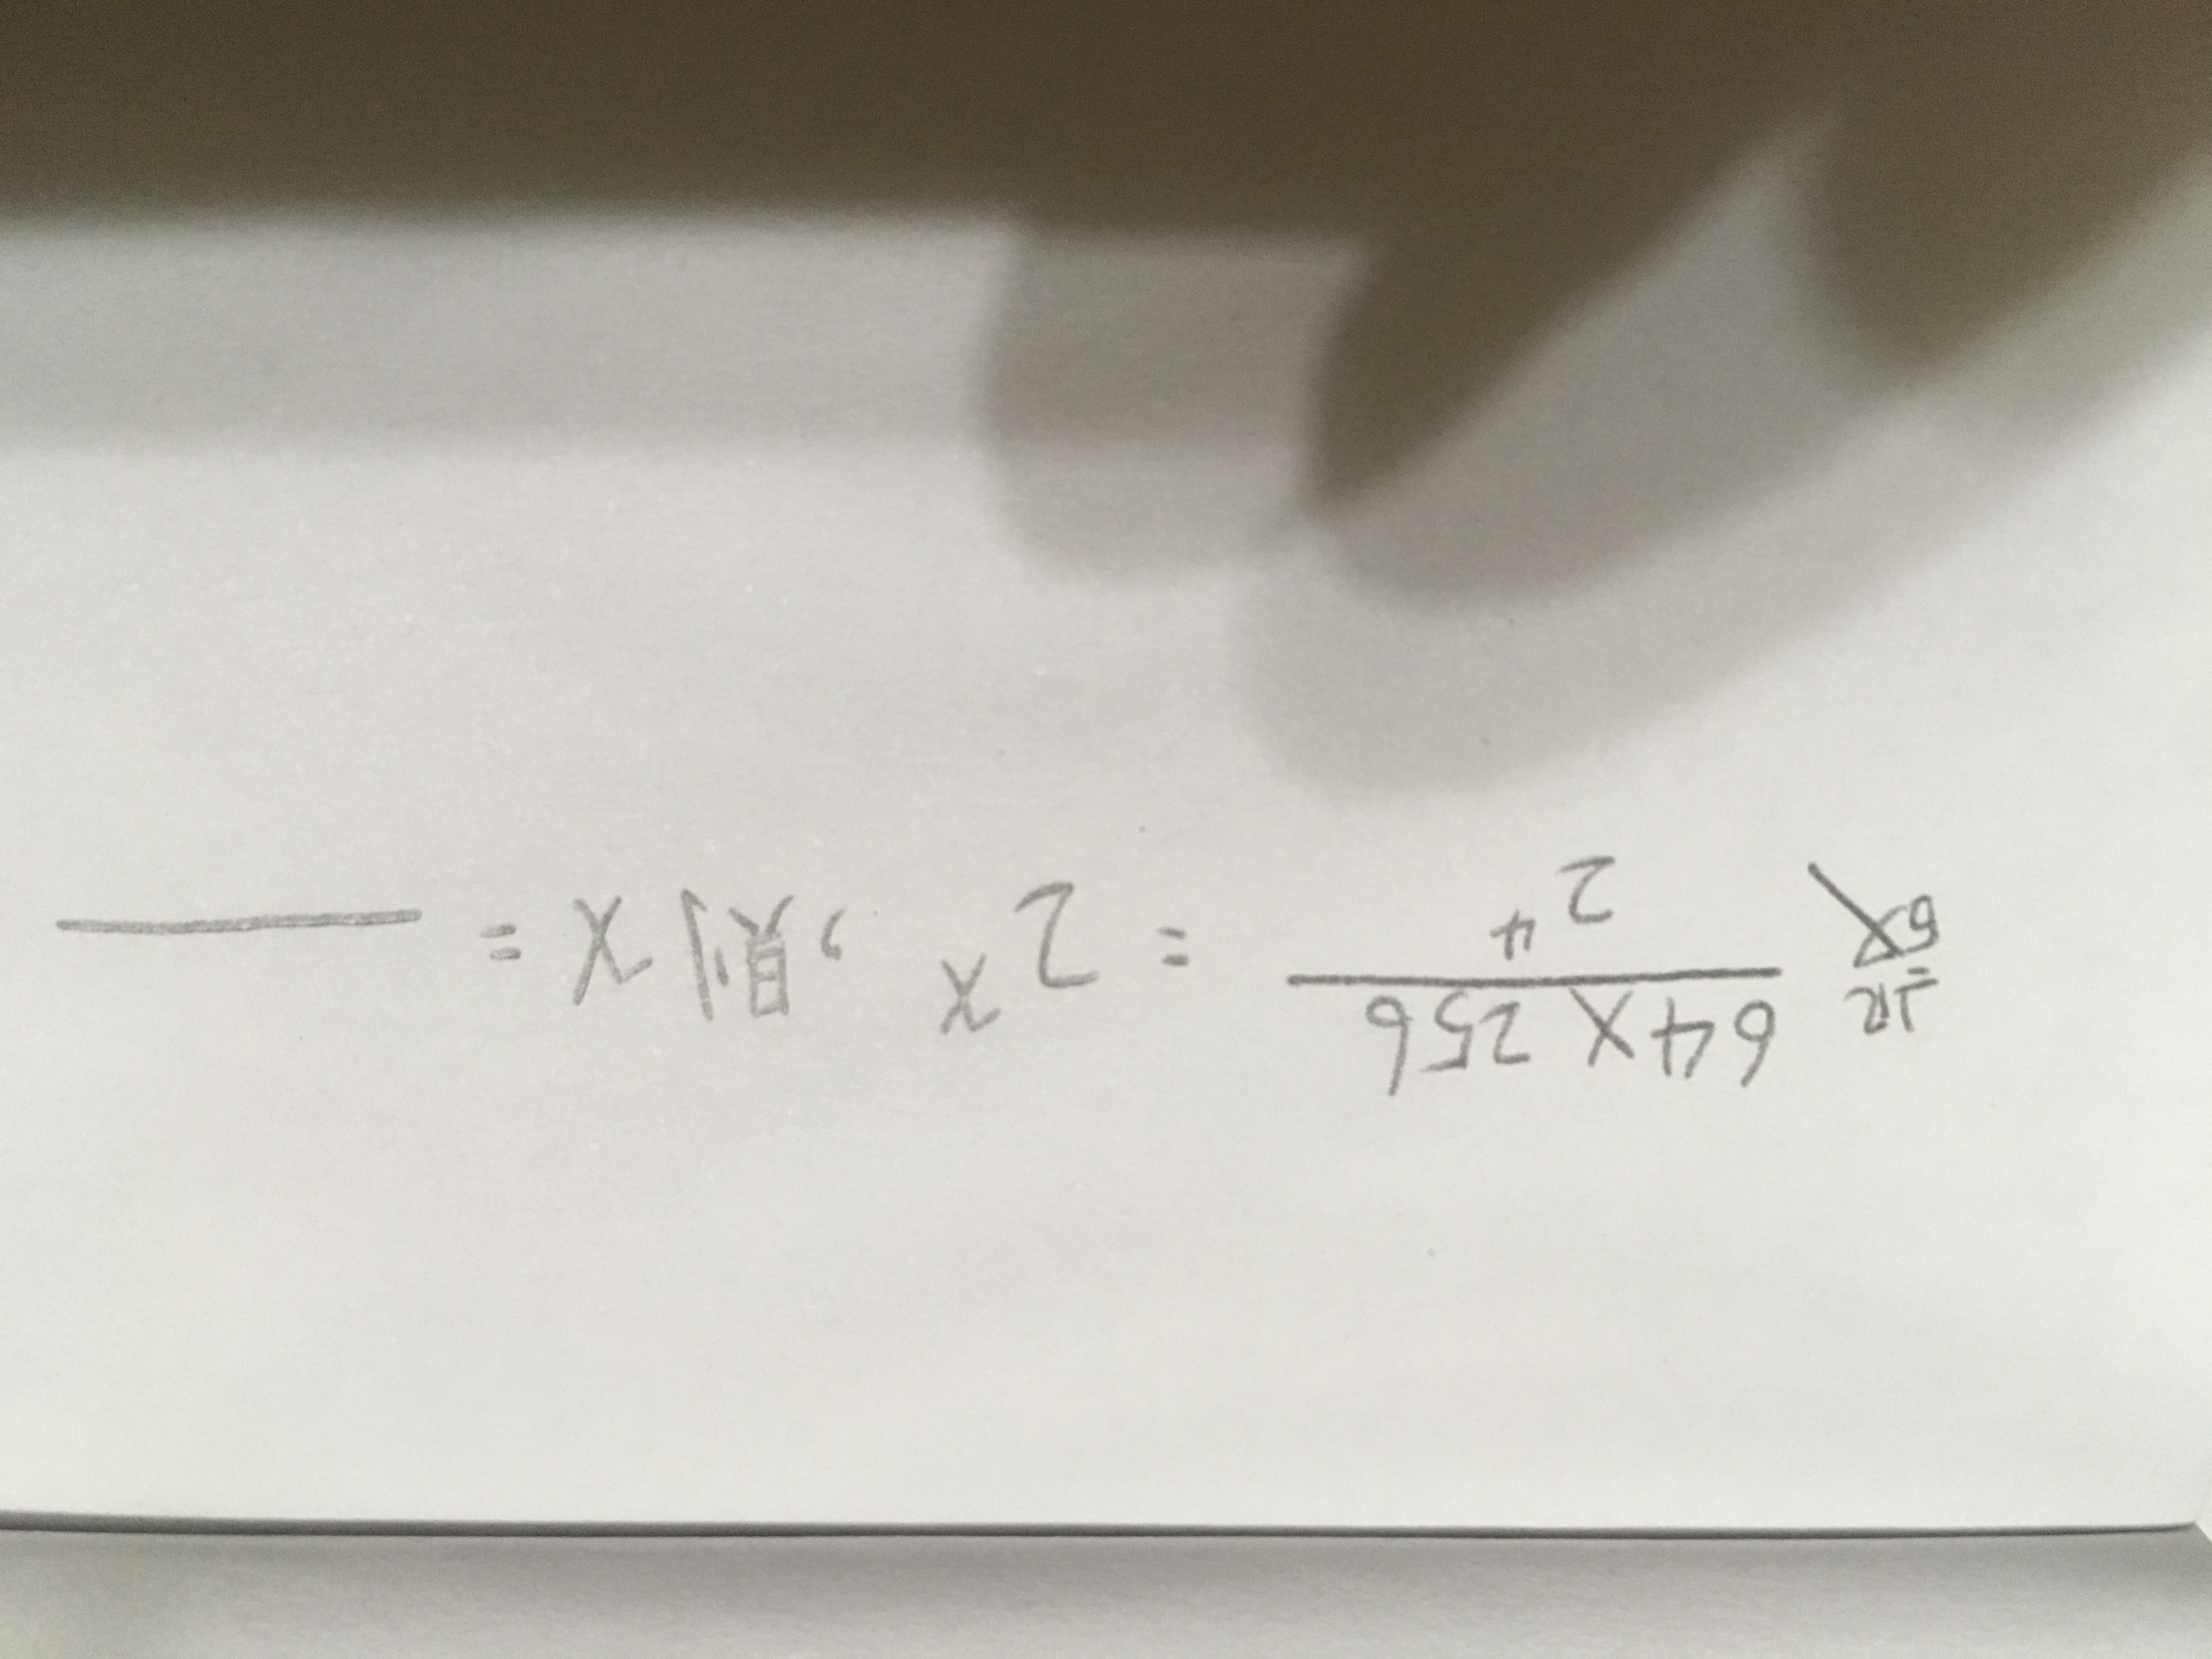 設 64×256 / 2⁴ = 2ˣ，則 x = ____